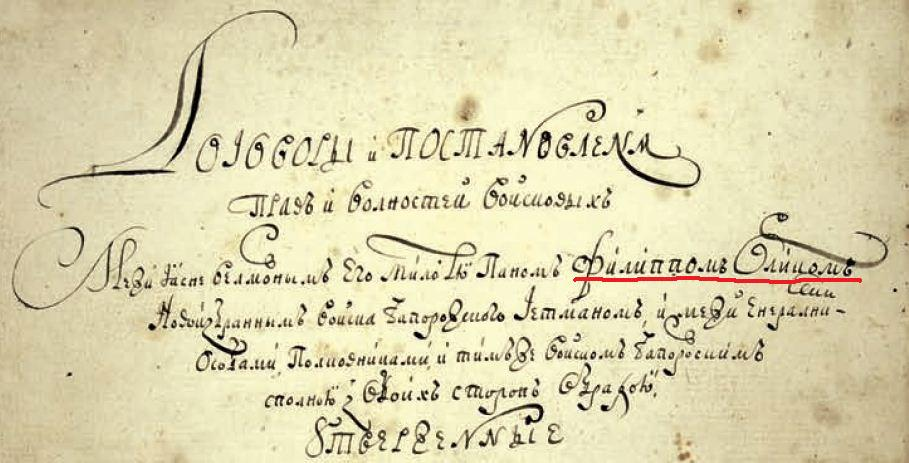 Договоры и постановленя
правъ и волностей войсковыхъ
Межи Ясне велможнымъ Его Милостю Паномъ Филиппомъ Орликомъ
Новоизбраннымъ войска Запорожского Гетманомъ, и межи Енерални-
ми
Особами Полковниками, и тимъ же войскомъ Запорожскимъ
сполною з обоихъ сторонъ Обрадою
Утверженные